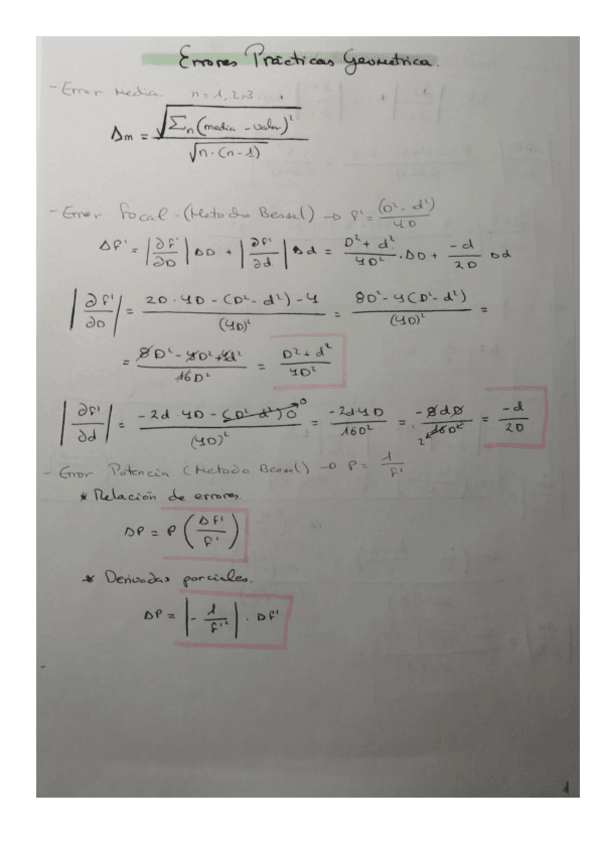 Errores Prácticas Geométrica.
- Error Media n=1,2,3....
Δm = √Σn(media - valor)² / √n·(n-1)
- Error Focal - (Metodo Bessel) → f' = (D² - d²) / 4D
Δf' = |∂f'/∂D| ΔD + |∂f'/∂d| Δd = (D² + d²)/4D² · ΔD + -d/2D Δd
|∂f'/∂D| = (2D · 4D - (D² - d²) - 4) / (4D)² = (8D² - 4(D² - d²)) / (4D)² =
= (8D² - 4D² + 4d²) / 16D² = (D² + d²) / 4D²
|∂f'/∂d| = (-2d · 4D - (D² - d²) 0) / (4D)² = -2d4D / 16D² = -8dD / 16D² = -d / 2D
- Error Potencia (Metodo Bessel) → P = 1/f'
* Relación de errores.
ΔP = P (Δf' / f')
* Derivadas parciales.
ΔP = |- 1/f'²| · Δf'
1